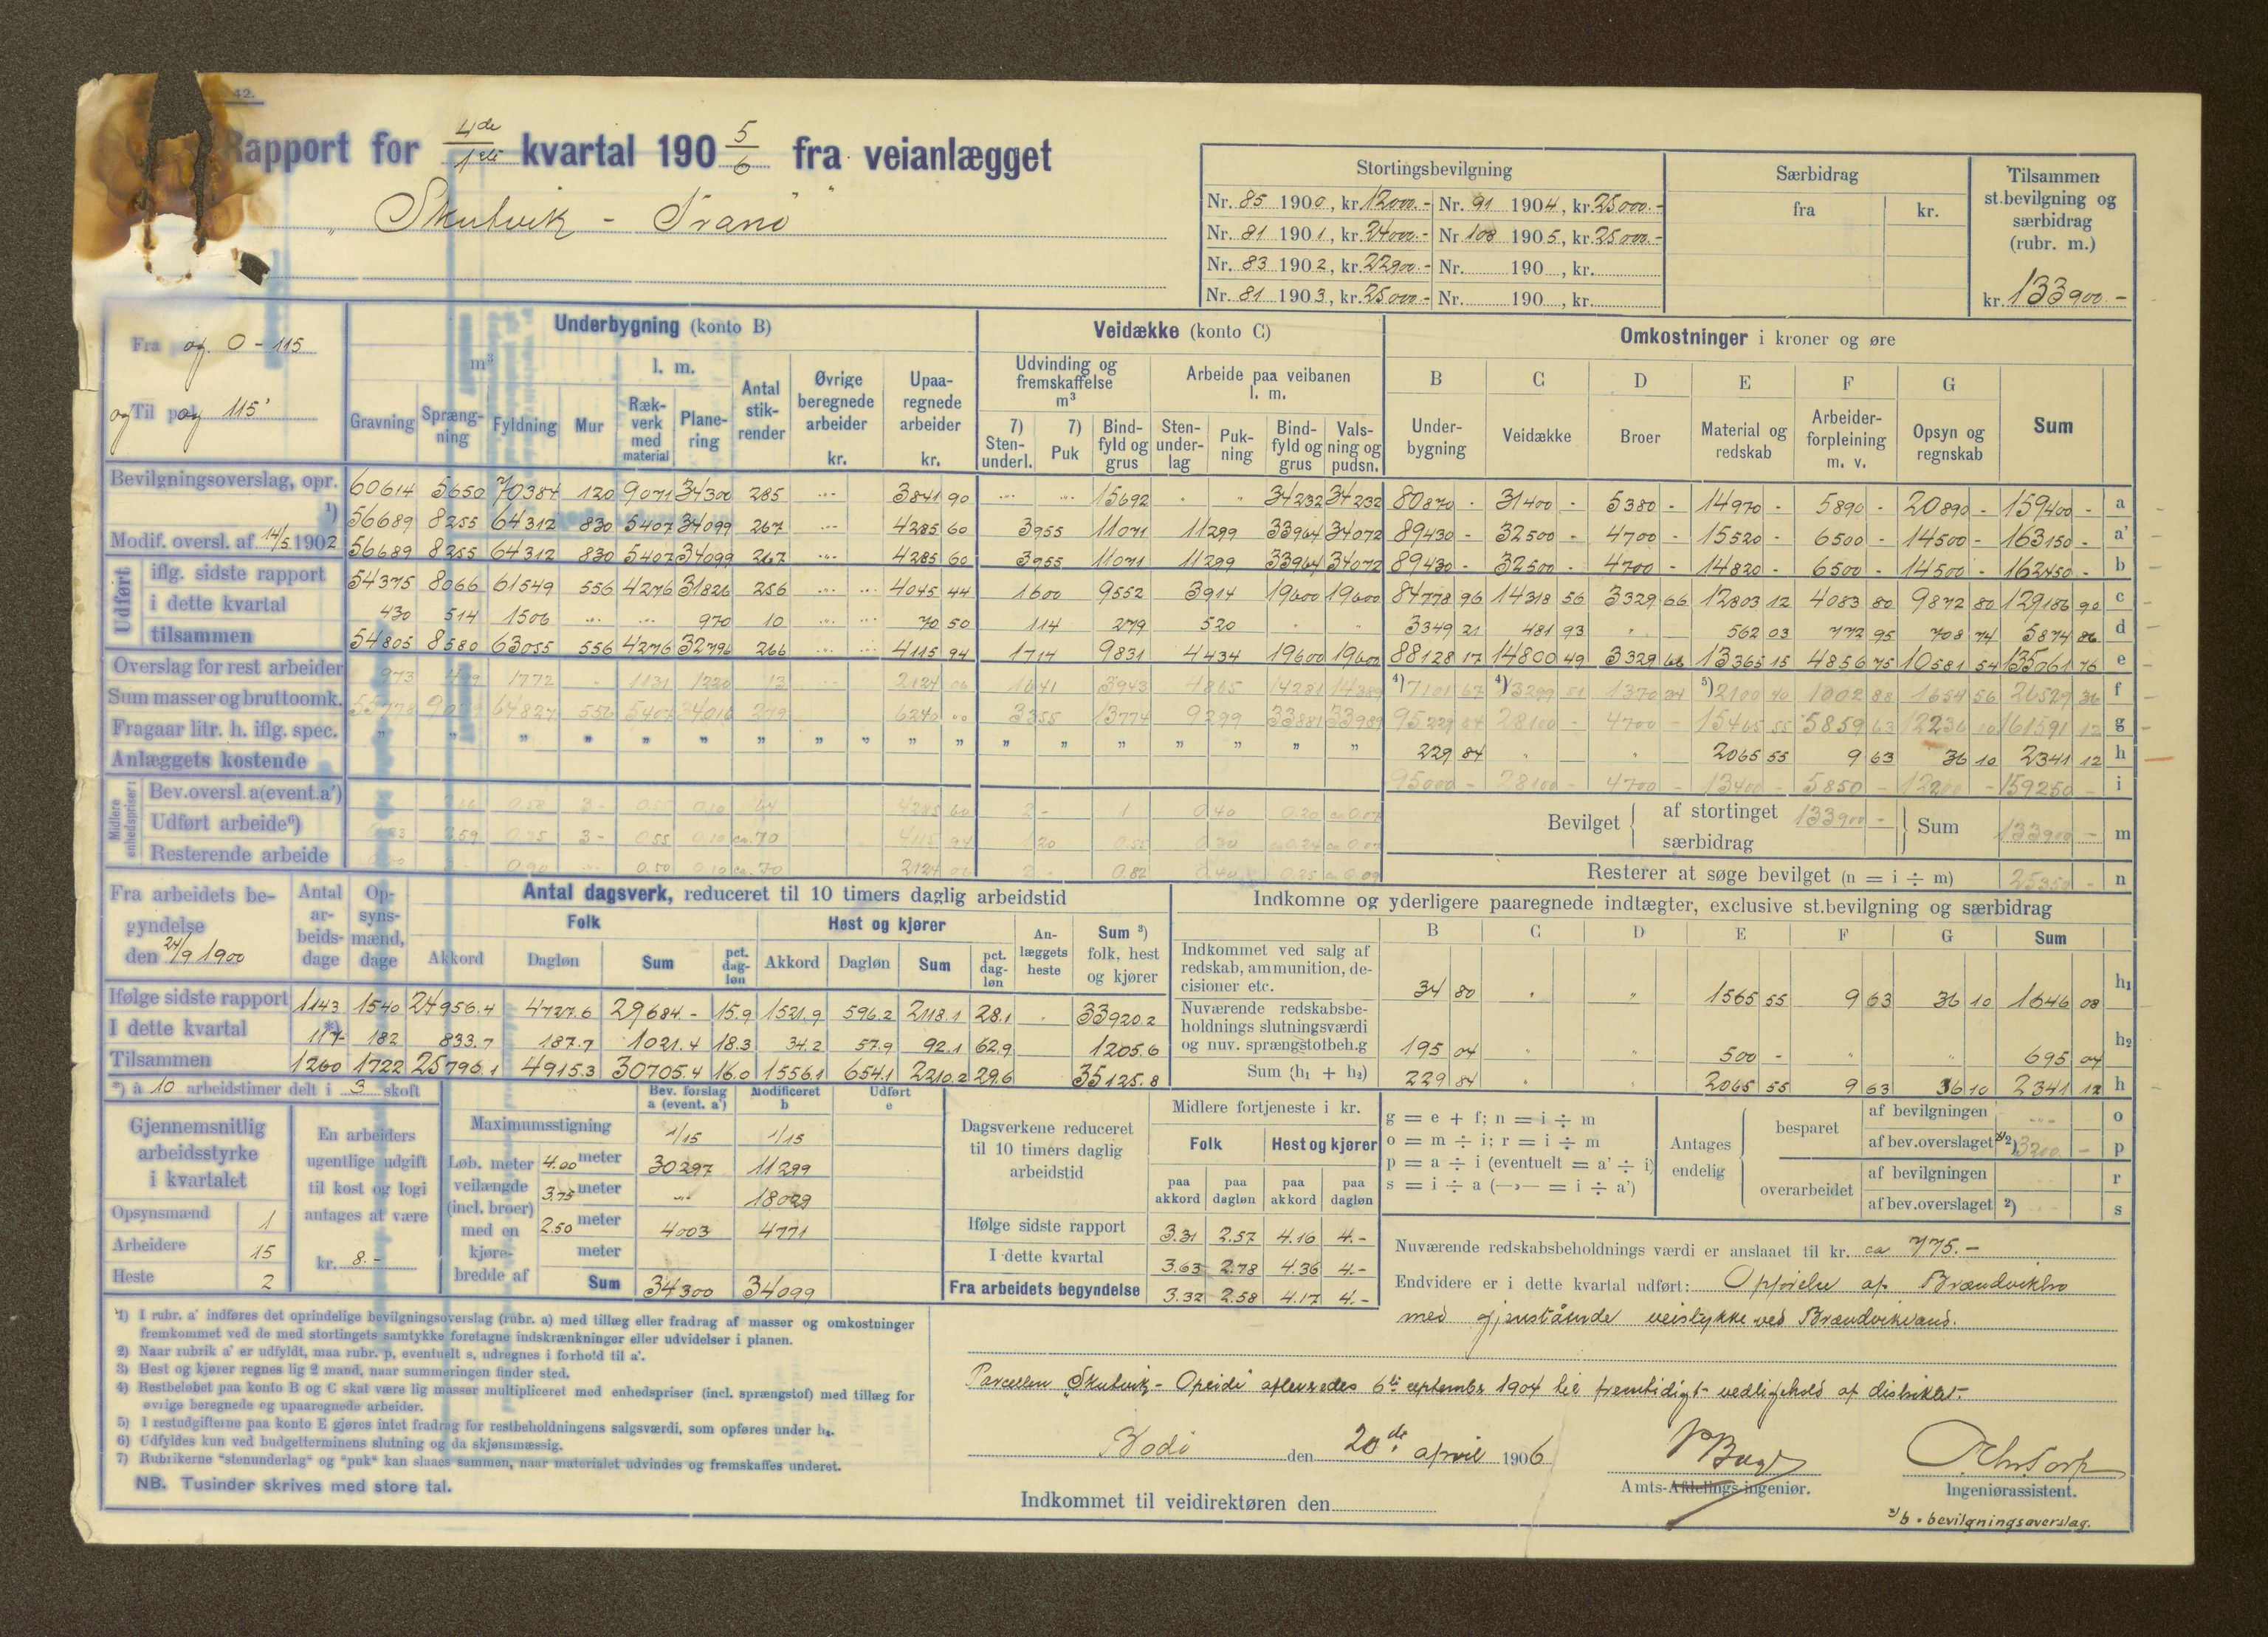 42.
Rapport for 4de/1ste kvartal 190 5/6 fra veianlægget
"Skutvik - Tranö"
Stortingsbevilgning
Nr. 85 1900, kr. 12000.- Nr. 91 1904, kr. 25000.-
Nr. 81 1901, kr. 24000.- Nr. 108 1905, kr. 25000.-
Nr. 83 1902, kr. 22900.- Nr. 190 , kr.
Nr. 81 1903, kr. 25000.- Nr. 190 , kr.
Særbidrag
fra kr.
Tilsammen
st.bevilgning og
særbidrag
(rubr. m.)
kr. 133900.-
Fra og. 0 - 115
og Til pæl og 115'
Underbygning (konto B)
m³ l. m.
Gravning Sprængning Fyldning Mur Rækverk med material Planering Antal stikrender Øvrige beregnede arbeider kr. Upaaregnede arbeider kr.
Veidække (konto C)
Udvinding og fremskaffelse m³ Arbeide paa veibanen l. m.
7) Stenunderl. 7) Puk Bindfyld og grus Stenunderlag Pukning Bindfyld og grus Valsning og pudsn.
Omkostninger i kroner og øre
B C D E F G
Underbygning Veidække Broer Material og redskab Arbeiderforpleining m. v. Opsyn og regnskab Sum
Bevilgningsoverslag, opr. 60614 5650 70384 120 9071 34300 285 ... 3841 90 ... ... 15692 " " 34232 34232 80870 - 31400 - 5380 - 14970 - 5890 - 20890 - 159400 - a
1) 56689 8255 64312 830 5407 34099 267 ... 4285 60 3955 11071 11299 33964 34072 89430 - 32500 - 4700 - 15520 - 6500 - 14500 - 163150 - a'
Modif. oversl. af 14/5 1902 56689 8255 64312 830 5407 34099 267 ... 4285 60 3955 11071 11299 33964 34072 89430 - 32500 - 4700 - 14820 - 6500 - 14500 - 162450 - b
Udført
iflg. sidste rapport 54375 8066 61549 556 4276 31826 256 ... ... 4045 44 1600 9552 3914 19600 19600 84778 96 14318 56 3329 66 12803 12 4083 80 9872 80 129186 90 c
i dette kvartal 430 514 1506 ... ... 970 10 ... ... 70 50 114 279 520 " " 3349 21 481 93 " 562 03 772 95 708 74 5874 86 d
tilsammen 54805 8580 63055 556 4276 32796 266 ... ... 4115 94 1714 9831 4434 19600 19600 88128 17 14800 49 3329 66 13365 15 4856 75 10581 54 135061 76 e
Overslag for rest arbeider 973 499 1772 - 1131 1220 13 2124 06 1641 3943 4865 14281 14389 4) 7101 67 4) 13299 51 1370 34 5) 2100 40 1002 88 1654 56 26529 36 f
Sum masser og bruttoomk. 55778 9079 64827 556 5407 34016 279 6240 00 3355 13774 9299 33881 33989 95229 84 28100 - 4700 - 15465 55 5859 63 12236 10 161591 12 g
Fragaar litr. h. iflg. spec. " " " " " " " " " " " " " " " " " " 229 84 " " 2065 55 9 63 36 10 2341 12 h
Anlæggets kostende 95000 - 28100 - 4700 - 13400 - 5850 - 12200 - 159250 - i
Midlere enhedspriser:
Bev.oversl. a (event. a') 0.58 3 - 0.55 0.10 64 4285 60 2 - 1 0.40 0.20 ca 0.07
Udført arbeide⁶) 2.59 0.35 3 - 0.55 0.10 ca. 70 4115 94 1 20 0.55 0.30 ca 0.24 ca 0.07
Resterende arbeide 0.90 ... 0.50 0.10 ca. 70 2124 06 2 - 0.82 0.40 0.25 ca 0.09
Bevilget af stortinget 133900 - særbidrag Sum 133900 - m
Resterer at søge bevilget (n = i ÷ m) 25350 - n
Fra arbeidets begyndelse
den 24/9 1900
Antal arbeidsdage Opsynsmænd, dage
Antal dagsverk, reduceret til 10 timers daglig arbeidstid
Folk Hest og kjører
Akkord Dagløn Sum pct. dagløn Akkord Dagløn Sum pct. dagløn Anlæggets heste Sum ³) folk, hest og kjører
Ifølge sidste rapport 1143 1540 24956.4 4727.6 29684 - 15.9 1521.9 596.2 2118.1 28.1 . 33920.2
I dette kvartal 117 *) 182 833.7 187.7 1021.4 18.3 34.2 57.9 92.1 62.9 1205.6
Tilsammen 1260 1722 25790.1 4915.3 30705.4 16.0 1556.1 654.1 2210.2 29.6 35125.8
*) à 10 arbeidstimer delt i 3 skoft
Indkomne og yderligere paaregnede indtægter, exclusive st.bevilgning og særbidrag
B C D E F G Sum
Indkommet ved salg af redskab, ammunition, decisioner etc. 34 80 " " 1565 55 9 63 36 10 1646 08 h₁
Nuværende redskabsbeholdnings slutningsværdi og nuv. sprængstofbeh.g 195 04 " " 500 - " " 695 04 h₂
Sum (h₁ + h₂) 229 84 " " 2065 55 9 63 36.10 2341 12 h
Gjennemsnitlig
arbeidsstyrke
i kvartalet
Opsynsmænd 1
Arbeidere 15
Heste 2
En arbeiders
ugentlige udgift
til kost og logi
antages at være
kr. 8.-
Bev. forslag a (event. a') Modificeret b Udført e
Maximumsstigning 1/15 1/15
Løb. meter veilængde (incl. broer) med en kjørebredde af
4.00 meter 30297 11299
3.75 meter ... 18029
2.50 meter 4003 4771
meter
Sum 34300 34099
Dagsverkene reduceret
til 10 timers daglig
arbeidstid
Midlere fortjeneste i kr.
Folk Hest og kjører
paa akkord paa dagløn paa akkord paa dagløn
Ifølge sidste rapport 3.31 2.57 4.16 4.-
I dette kvartal 3.63 2.78 4.36 4.-
Fra arbeidets begyndelse 3.32 2.58 4.17 4.-
g = e + f; n = i ÷ m
o = m ÷ i; r = i ÷ m
p = a ÷ i (eventuelt = a' ÷ i)
s = i ÷ a (—»— = i ÷ a')
Antages endelig
besparet af bevilgningen ... o
af bev.overslaget *²) 3200 - p
overarbeidet af bevilgningen r
af bev.overslaget ²) s
Nuværende redskabsbeholdnings værdi er anslaaet til kr. ca 775.-
Endvidere er i dette kvartal udført: Opförelse af Brændvikbro
med gjenstående veistykke ved Brændvikvand.
Parcellen "Skutvik - Opeidi" afleveredes 6te september 1904 til fremtidigt vedligehold af distriktet.
Bodö den 20de april 1906
Amts-Afdelings-ingeniør.
Ingeniørassistent.
Indkommet til veidirektøren den
*) b = bevilgningsoverslag.
¹) I rubr. a' indføres det oprindelige bevilgningsoverslag (rubr. a) med tillæg eller fradrag af masser og omkostninger
fremkommet ved de med stortingets samtykke foretagne indskrænkninger eller udvidelser i planen.
2) Naar rubrik a' er udfyldt, maa rubr. p, eventuelt s, udregnes i forhold til a'.
3) Hest og kjører regnes lig 2 mand, naar summeringen finder sted.
4) Restbeløbet paa konto B og C skal være lig masser multipliceret med enhedspriser (incl. sprængstof) med tillæg for
øvrige beregnede og upaaregnede arbeider.
5) I restudgifterne paa konto E gjøres intet fradrag for restbeholdningens salgsværdi, som opføres under h₂.
6) Udfyldes kun ved budgetterminens slutning og da skjønsmæssig.
7) Rubrikerne "stenunderlag" og "puk" kan slaaes sammen, naar materialet udvindes og fremskaffes underet.
NB. Tusinder skrives med store tal.